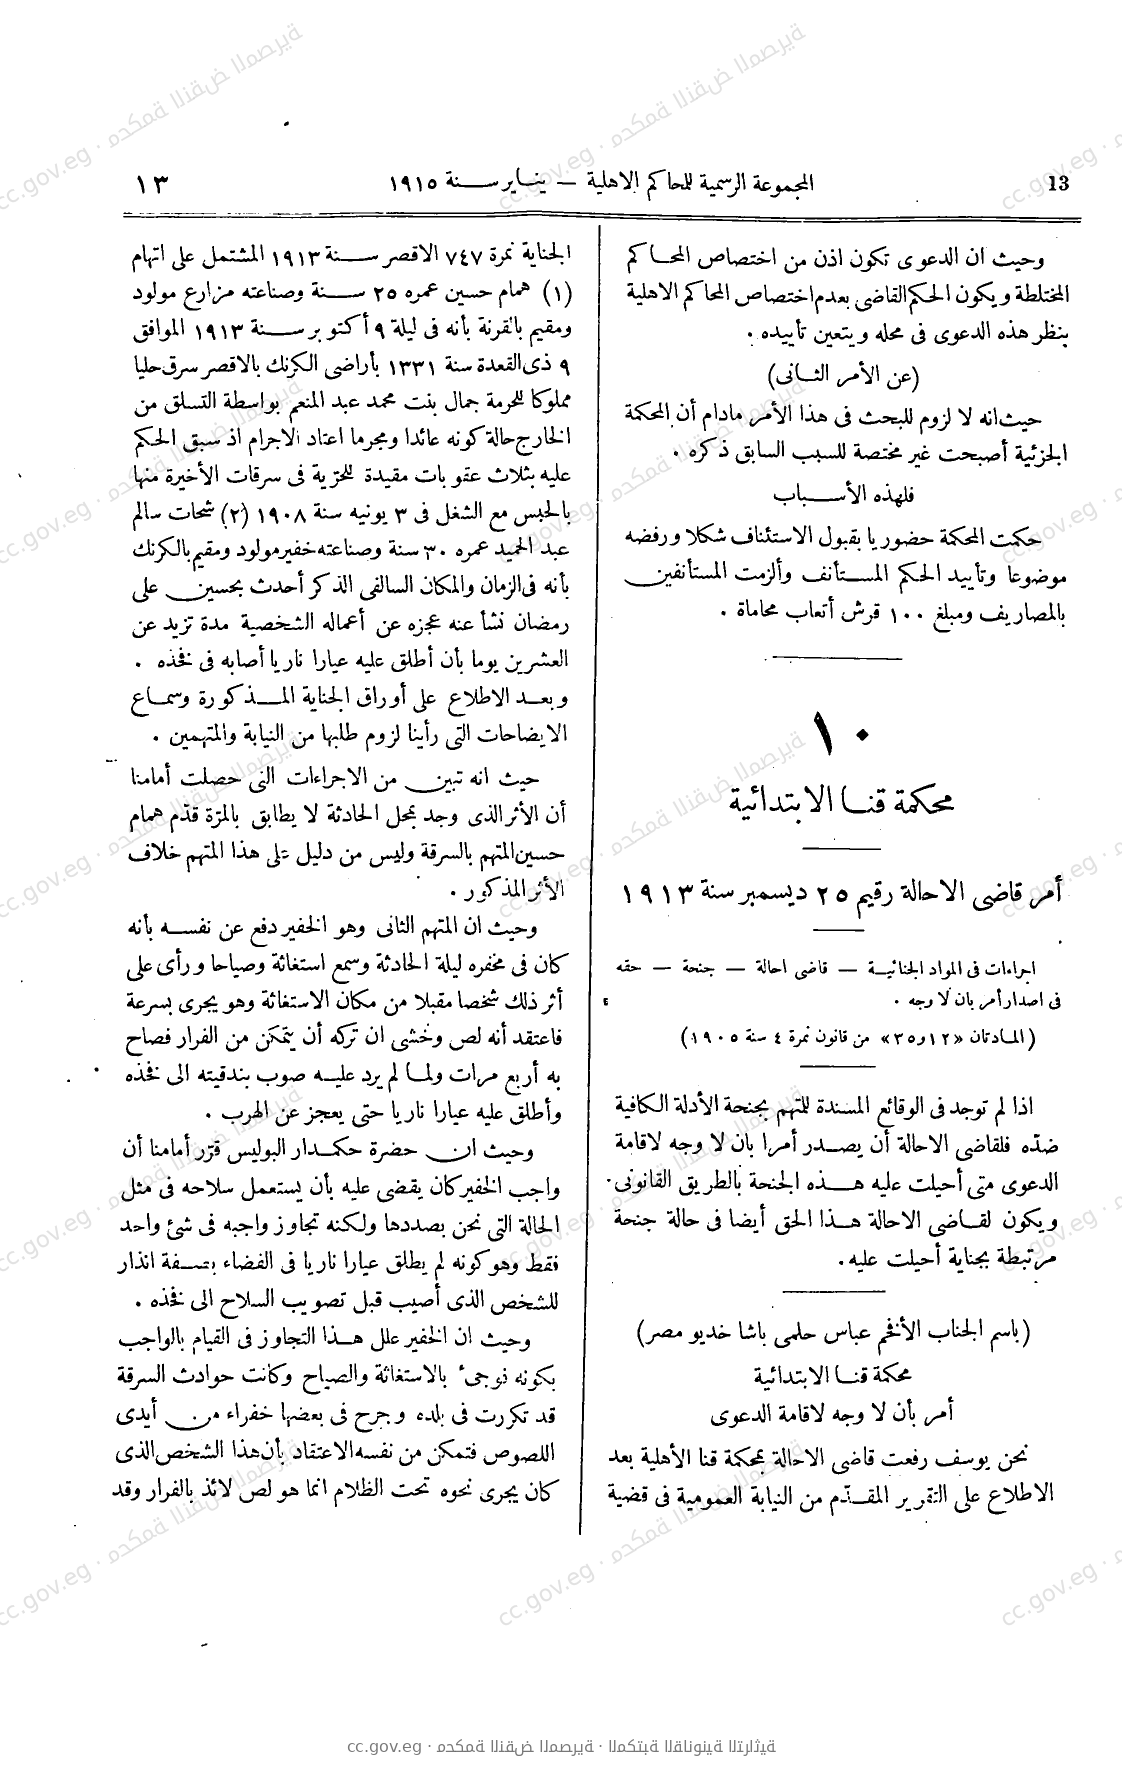 13
المجموعة الرسمية للمحاكم الاهلية — ينـاير سـنة ١٩١٥
١٣
وحيث ان الدعوى تكون اذن من اختصاص المحاكم
المختلطة ويكون الحكم القاضى بعدم اختصاص المحاكم الاهلية
بنظر هذه الدعوى فى محله ويتعين تأييده .
(عن الأمر الثانى)
حيث انه لا لزوم للبحث فى هذا الأمر مادام أن المحكمة
الجزئية أصبحت غير مختصة للسبب السابق ذكره .
فلهذه الأسباب
حكمت المحكمة حضوريا بقبول الاستئناف شكلا ورفضه
موضوعا وتأييد الحكم المستأنف وألزمت المستأنفين
بالمصاريف ومبلغ ١٠٠ قرش أتعاب محاماة .
١٠
محكمة قنا الابتدائية
أمر قاضى الاحالة رقيم ٢٥ ديسمبر سنة ١٩١٣
اجراءات فى المواد الجنائية — قاضى احالة — جنحة — حقه
فى اصدار أمر بان لا وجه .
(المادتان «١٢ و٣٥» من قانون نمرة ٤ سنة ١٩٠٥)
اذا لم توجد فى الوقائع المسندة للمتهم بجنحة الأدلة الكافية
ضدّه فلقاضى الاحالة أن يصدر أمرا بان لا وجه لاقامة
الدعوى متى أحيلت عليه هذه الجنحة بالطريق القانونى .
ويكون لقاضى الاحالة هذا الحق أيضا فى حالة جنحة
مرتبطة بجناية أحيلت عليه .
(باسم الجناب الأفخم عباس حلمى باشا خديو مصر)
محكمة قنا الابتدائية
أمر بأن لا وجه لاقامة الدعوى
نحن يوسف رفعت قاضى الاحالة بمحكمة قنا الأهلية بعد
الاطلاع على التقرير المقدّم من النيابة العمومية فى قضية
الجناية نمرة ٧٤٧ الاقصر سنة ١٩١٣ المشتمل على اتهام
(١) همام حسين عمره ٢٥ سنة وصناعته مزارع مولود
ومقيم بالقرنة بأنه فى ليلة ٩ أكتوبر سنة ١٩١٣ الموافق
٩ ذى القعدة سنة ١٣٣١ بأراضى الكرنك بالاقصر سرق حليا
مملوكا للحرمة جمال بنت محمد عبد المنعم بواسطة التسلق من
الخارج حالة كونه عائدا ومجرما اعتاد الاجرام اذ سبق الحكم
عليه بثلاث عقوبات مقيدة للحرّية فى سرقات الأخيرة منها
بالحبس مع الشغل فى ٣ يونيه سنة ١٩٠٨ (٢) شحات سالم
عبد الحميد عمره ٣٠ سنة وصناعته خفير مولود ومقيم بالكرنك
بأنه فى الزمان والمكان السالفى الذكر أحدث بحسين على
رمضان نشأ عنه عجزه عن أعماله الشخصية مدة تزيد عن
العشرين يوما بأن أطلق عليه عيارا ناريا أصابه فى فخذه .
وبعد الاطلاع على أوراق الجناية المذكورة وسماع
الايضاحات التى رأينا لزوم طلبها من النيابة والمتهمين .
حيث انه تبين من الاجراءات التى حصلت أمامنا
أن الأثر الذى وجد بمحل الحادثة لا يطابق بالمرّة قدّم همام
حسين المتهم بالسرقة وليس من دليل على هذا المتهم خلاف
الأثر المذكور .
وحيث ان المتهم الثانى وهو الخفير دفع عن نفسه بأنه
كان فى مخفره ليلة الحادثة وسمع استغاثة وصياحا ورأى على
أثر ذلك شخصا مقبلا من مكان الاستغاثة وهو يجرى بسرعة
فاعتقد أنه لص وخشى ان تركه أن يتمكن من الفرار فصاح
به أربع مرات ولما لم يرد عليه صوب بندقيته الى فخذه
وأطلق عليه عيارا ناريا حتى يعجز عن الهرب .
وحيث ان حضرة حكمدار البوليس قرّر أمامنا أن
واجب الخفير كان يقضى عليه بأن يستعمل سلاحه فى مثل
الحالة التى نحن بصددها ولكنه تجاوز واجبه فى شئ واحد
فقط وهو كونه لم يطلق عيارا ناريا فى الفضاء بصفة انذار
للشخص الذى أصيب قبل تصويب السلاح الى فخذه .
وحيث ان الخفير علل هذا التجاوز فى القيام بالواجب
بكونه فوجئ بالاستغاثة والصياح وكانت حوادث السرقة
قد تكررت فى بلده وجرح فى بعضها خفراء من أيدى
اللصوص فتمكن من نفسه الاعتقاد بأن هذا الشخص الذى
كان يجرى نحوه تحت الظلام انما هو لص لائذ بالفرار وقد
cc.gov.eg · محكمة النقض المصرية · المكتبة القانونية التراثية